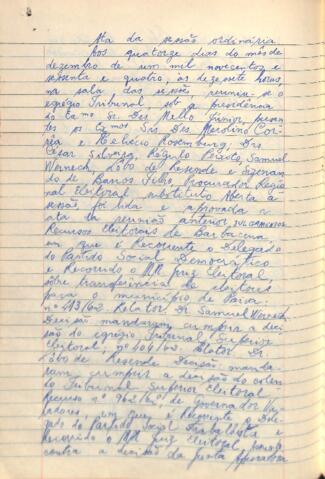 Ata da sessão ordinária
Aos quatorze dias do mês de
dezembro de um mil novecentos e
sessenta e quatro, às dezessete horas
na sala das sessões reuniu-se o
egrégio Tribunal, sob a presidência
do Exmo. Sr. Des. Mello Júnior, presen
tes os Exmos. Srs. Des. Merolino Cor-
rêa e Helvécio Rosenburg, Drs.
César Silveira, Régulo Peixoto, Samuel
Werneck, Lobo de Resende e Sizenan
do de Barros Filho, Procurador Regio
nal Eleitoral substituto. Aberta a
sessão foi lida e aprovada a
ata da reunião anterior. JULGAMENTOS:
Recursos eleitorais de Barbacena
em que é Recorrente o Delegado
do Partido Social Democrático
e Recorrido o MM. juiz Eleitoral,
sôbre transferência de eleitores
para o município de
nº 413/62. Relator Dr. Samuel Werneck,
Decisão: mandaram cumprir a deci
são do egrégio Tribunal Superior
Eleitoral; nº 404/62. Relator Dr.
Lobo de Resende. Decisão: manda-
ram cumprir a decisão do colen
do Tribunal Superior Eleitoral.
Recurso nº 962/62, de Governador Va-
ladares, em que é Recorrente o Dele
gado do Partido Social Trabalhista e
Recorrido o MM. juiz Eleitoral,
contra a decisão da Junta Apuradora